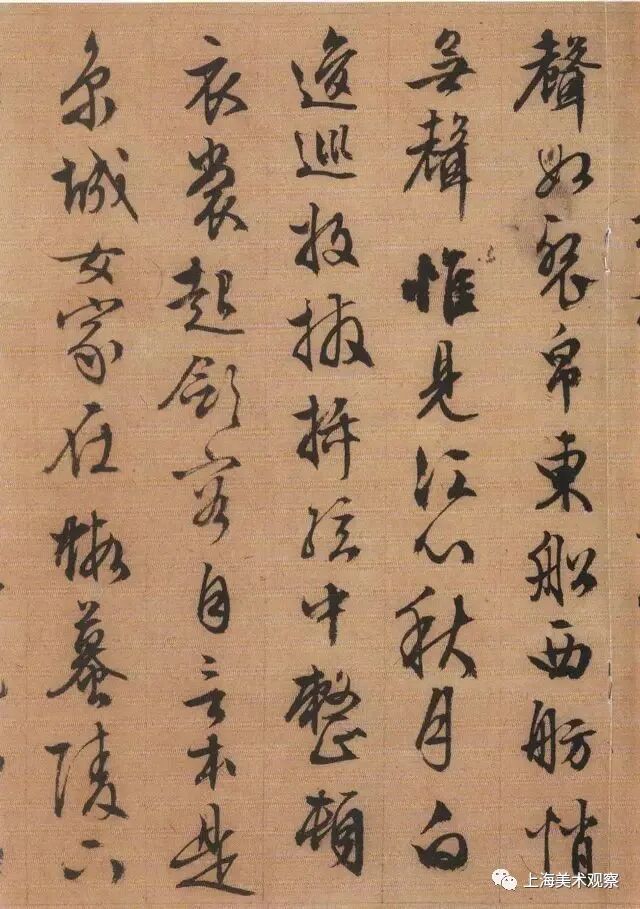 聲如裂帛東船西舫悄
無聲惟見江心秋月白
逡巡收撥插絃中整頓
衣裳起斂容自言本是
京城女家在蝦蟇陵下
上海美术观察